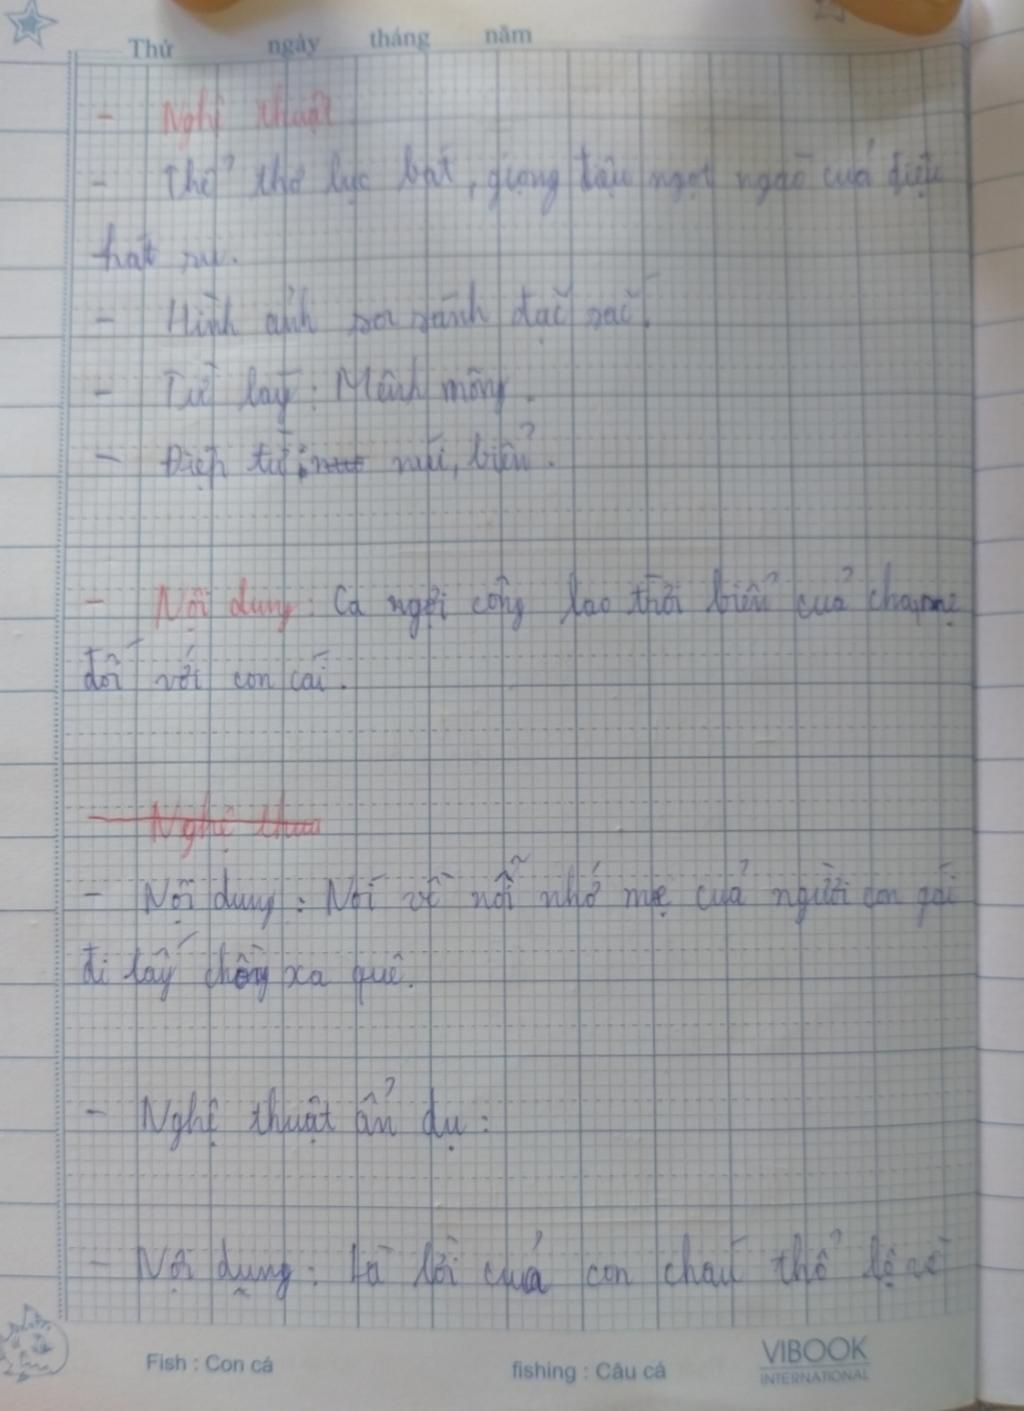 Thứ ngày tháng năm
- Nghệ thuật
- Thể thơ lục bát, giọng điệu ngọt ngào của điệu
hát ru.
- Hình ảnh so sánh đặc sắc.
- Từ láy: Mênh mông.
- Điệp từ: núi, biển.
- Nội dung: Ca ngợi công lao trời biển của cha mẹ
đối với con cái.
- Nghệ thuâ
- Nội dung: Nói về nỗi nhớ mẹ của người con gái
đi lấy chồng xa quê.
- Nghệ thuật ẩn dụ:
- Nội dung: Là lời của con cháu thổ lộ về
Fish : Con cá
fishing : Câu cá
VIBOOK
INTERNATIONAL